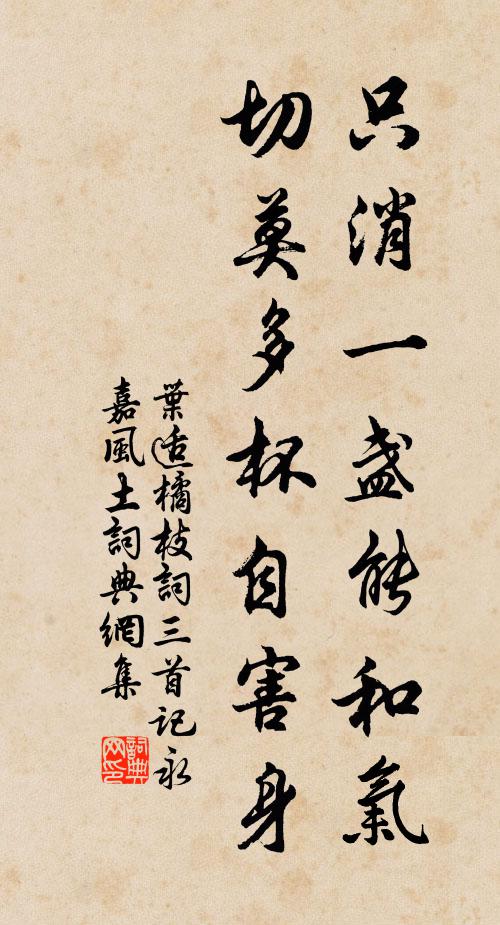 只消一盞能和氣
切莫多杯自害身
葉适橘枝詞三首記永
嘉風土詞典網集
詞典
网印